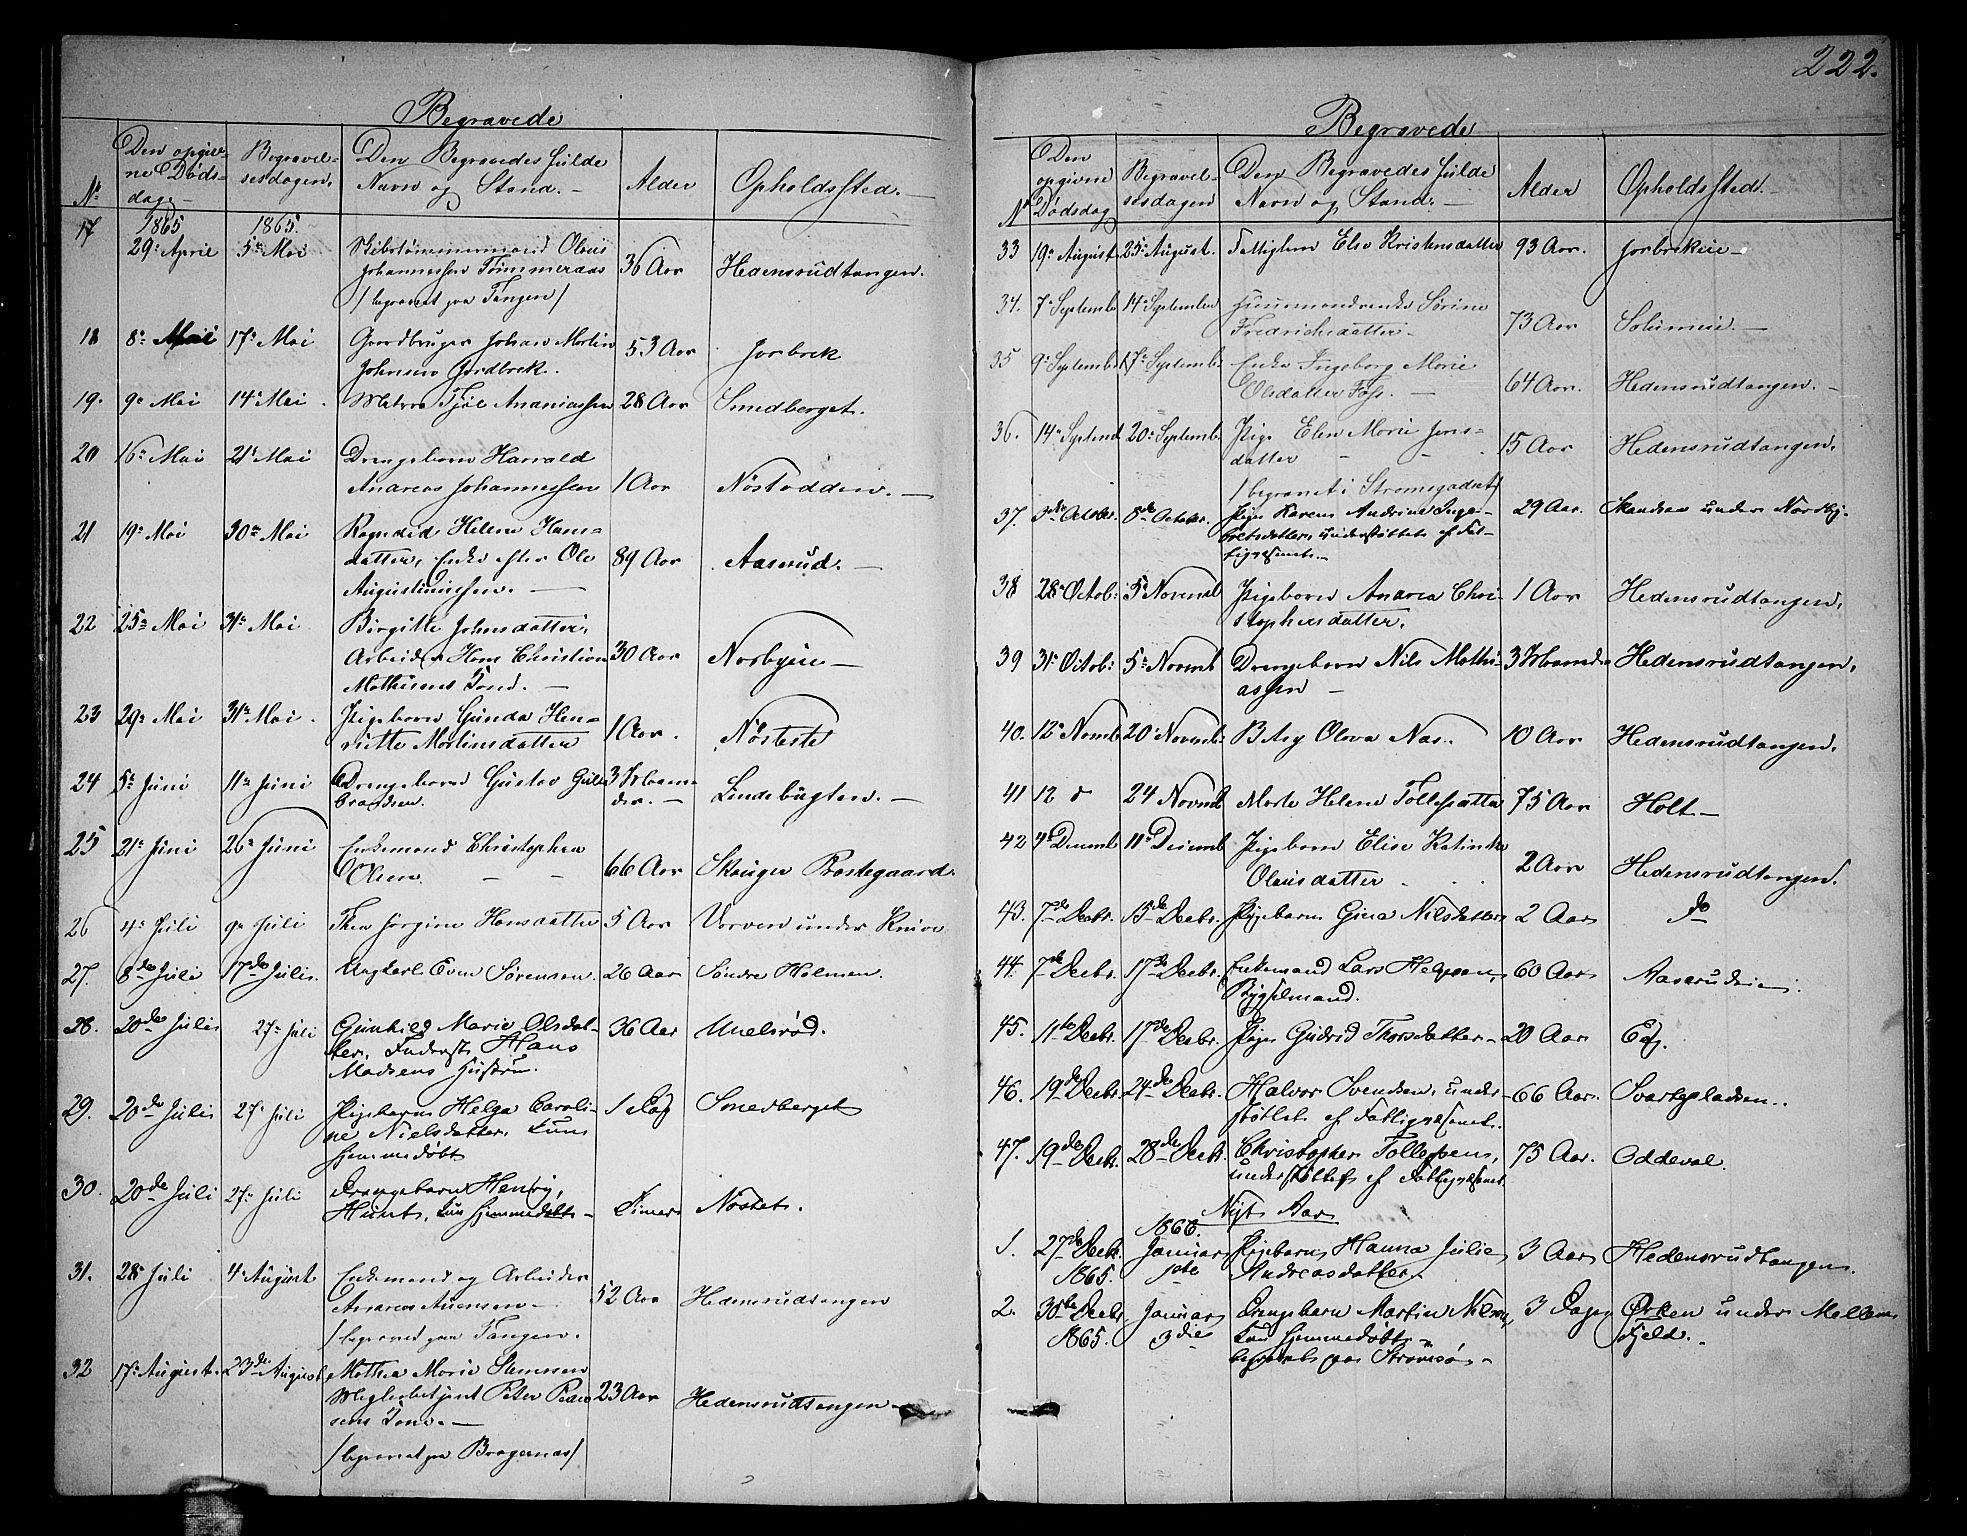 222.
Begravede
Nr.
Den opgiv-
ne Døds-
dag.
Begravel-
sesdagen.
Den Begravedes fulde
Navn og Stand.
Alder
Opholdssted.
17 1865 29de April 1865. 5te Mai Skibstømmermand Olaus
Johannessen Tømmeraas 36 Aar Hedensrudtangen.
/begravet paa Tangen/
18 8de Mai 17de Mai Gaardbruger Johan Martin
Johnsen Jordbrek. 53 Aar Jorbrek
19. 9de Mai 14de Mai. Matros Tjøl Ananiassen 28 Aar Smedberget.
20 16de Mai 21de Mai Drengebarn Harrald
Andreas Johannessen 1 Aar Nøstodden.
21 19de Mai 30te Mai Ragndid Helene Hans-
datter, Enke efter Ole 89 Aar Aasrud.
Augustinussen.
22 25de Mai 31te Mai Birgitte Johnsdatter,
Arbeider Hans Christian 30 Aar Norbyeie
Mathisens Kone.
23 29de Mai 31te Mai. Pigebarn Gunda Hen-
riette Martinsdatter 1 Aar. Nøsteste
24 5te Juni 11te Juni Drengebarn Gustav Gul-
brandsen. 3 Maane-
der. Lindebugten.
25 21de Juni 26de Juni Enkemand Christopher
Olsen. 66 Aar Skouger Præstegaard.
26 4de Juli 9de Juli Thea Jørgine Hansdatter 5 Aar Verven under Knive
27. 8de Juli 17de Juli. Ungkarl Even Sørensen 26 Aar Søndre Holmen.
28. 20de Juli 27de Juli Gunhild Marie Olsdat-
ter, Inderst Hans 36 Aar Unelsrød.
Madsens Hustru.
29. 20de Juli 27de Juli Pigebarn Helga Caroli-
ne Nielsdatter. Kun 1 Dag Smedberget
hjemmedøbt
30. 20de Juli 27de Juli Drengebarn Henry,
Hunt, kun hjemmedøbt. Timer Nøstet.
31. 28de Juli 4de August Enkemand og Arbeider
Andreas 52 Aar Hedensrudtangen
/begravet paa Tangen.
32 17de August. 23de August Mathea Marie Stensen
Peter Peder-
sens Kone. 23 Aar Hedensrudtangen
/begravet paa Bragernæs/
Begravede
Nr
Den
opgivne
Dødsdag
Begravel-
sesdagen
Den Begravedes fulde
Navn og Stand.
Alder
Opholdssted.
33 19de August 25de August. Fattiglem Else Kristensdatter 93 Aar. Jorbrekeie
34. 7de Septemb. 14de September Huusmandsenke Sørine
Fredrichsdatter. 73 Aar Solumeie.
35 9de Septemb. 17de Septemb. Enke Ingeborg Marie
Olsdatter Foss. 64 Aar. Hedensrudtangen.
36. 14de Septemb 20de Septemb. Pige Elen Marie Jens-
datter 15 Aar Hedensrudtangen.
/begravet i Strømsgodset/
37. 3die Octobr. 8de October. Pige Karen Andrine Inge-
bretsdatter, understøttet af Fat-
tigvæsenet. 29 Aar. Skandsen under Nordby.
38 28de Octob: 5te Novemb Pigebarn Andrea Chri-
stophersdatter. 1 Aar Hedensrudtangen.
39 31te Octob: 5te Novemb Drengebarn Nils Mathi-
assen 3 Maaneder Hedensrudtangen.
40. 12de Novmb 20de Novemb. Betsy Olava Næs. 10 Aar Hedensrudtangen.
41 12 d 24 Novmb Marte Helene Tollefsdatter 75 Aar Holt
42 4de Decemb 11te Decemb Pigebarn Elise Katinka
Olausdatter 2 Aar Hedensrudtangen.
43. 7de Decbr. 15de Decbr. Pigebarn Gina Nilsdatter 2 Aar do
44. 7de Decbr. 17de Decbr. Enkemand Lars Helgesen, 60 Aar Aasrudeie.
Bygselmand.
45. 11te Decbr. 17de Decbr. Pige Gudrid Thorsdatter 20 Aar Eg.
46. 19de Decbr. 24de Decbr. Halvor Svendsen, under-
støttet af Fattigvæsenet. 66 Aar. Svartepladsen.
47. 19de Decbr. 28de Decbr. Christopher Tollefsen,
understøttet af Fattigvæsenet 75 Aar. Oddeval.
Nyt Aar
1. 27de Decbr. 1865. 1866. Januar 1ste Pigebarn Hanna Julie
Andreasdatter. 3 Aar Hedensrudtangen.
2. 30te Decbr. 1865. Januar 3die Drengebarn Martin Nilsen,
kun hjemmedøbt. 3 Dage Ørken under Mellem-
fjeld.
begravet paa Strømsø.